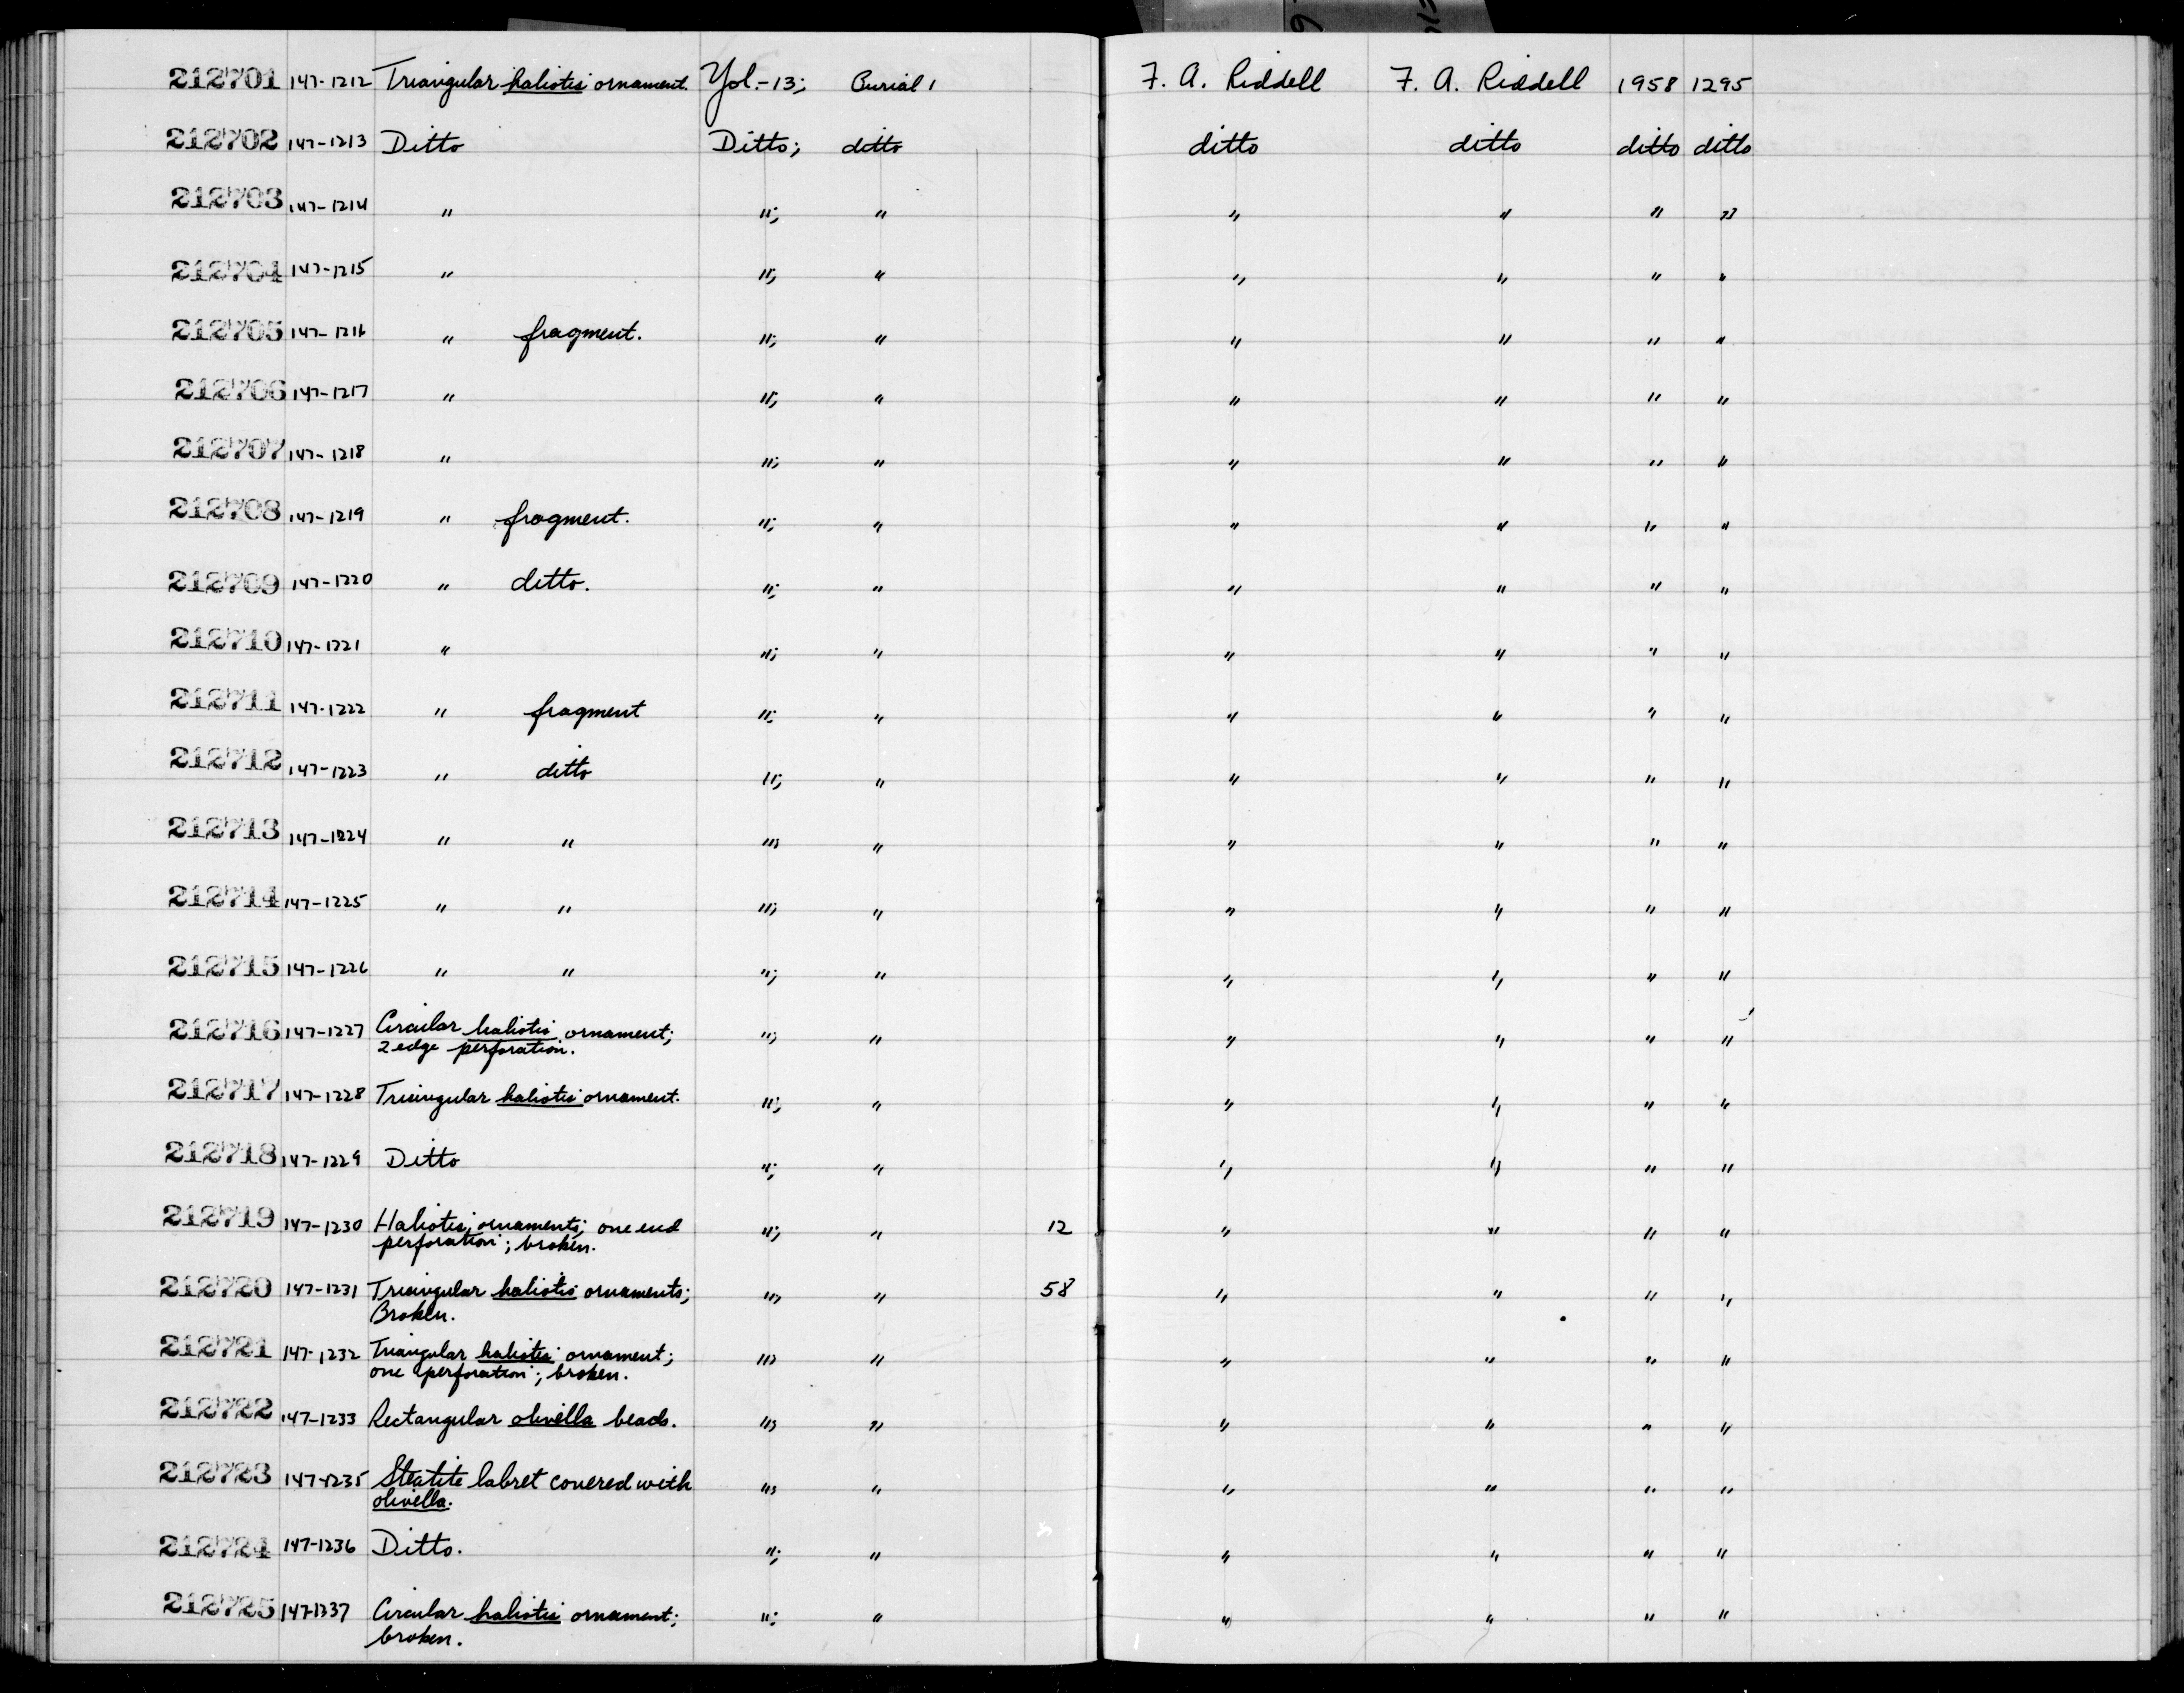 212701 147-1212 Triangular haliotis ornament. Yol.-13; Burial 1 F. A. Riddell F. A. Riddell 1958 1295
212702 147-1213 Ditto Ditto; ditto ditto ditto ditto ditto
212703 147-1214 " "; " " " " "
212704 147-1215 " "; " " " " "
212705 147-1216 " fragment. "; " " " " "
212706 147-1217 " "; " " " " "
212707 147-1218 " "; " " " " "
212708 147-1219 " fragment. "; " " " " "
212709 147-1220 " ditto. "; " " " " "
212710 147-1221 " "; " " " " "
212711 147-1222 " fragment "; " " " " "
212712 147-1223 " ditto "; " " " " "
212713 147-1224 " " "; " " " " "
212714 147-1225 " " "; " " " " "
212715 147-1226 " " "; " " " " "
212716 147-1227 Circular haliotis ornament; "; " " " " "
2 edge perforation.
212717 147-1228 Triangular haliotis ornament. "; " " " " "
212718 147-1229 Ditto "; " " " " "
212719 147-1230 Haliotis ornaments; one end "; " 12 " " " "
perforation; broken.
212720 147-1231 Triangular haliotis ornaments; "; " 58 " " " "
Broken.
212721 147-1232 Triangular haliotis ornament; "; " " " " "
one perforation; broken.
212722 147-1233 Rectangular olivella beads. "; " " " " "
212723 147-1235 Steatite labret covered with "; " " " " "
olivella.
212724 147-1236 Ditto. "; " " " " "
212725 147-1237 Circular haliotis ornament; "; " " " " "
broken.